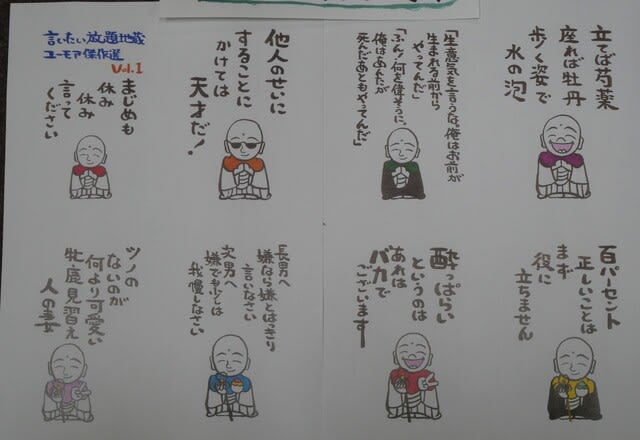 言いたい放題地蔵
ユーモア傑作選
Vol.1
まじめも
休み
休み
言って
ください
他人のせいに
することに
かけては
天才だ!
「生意気を言うな。俺はお前が
生まれる前から
やってんだ」
「ふん！何を偉そうに。
俺はあんたが
死んだあともやってんだ」
立てば芍薬
座れば牡丹
歩く姿で
水の泡
ツノの
ないのが
何より可愛い
牝鹿見習え
人の妻
「長男へ
嫌なら嫌とはっきり
言いなさい
次男へ
嫌でも少しは
我慢しなさい
酔っぱらい
というのは
あれは
バカで
ございます
百パーセント
正しいことは
まず
役に
立ちません